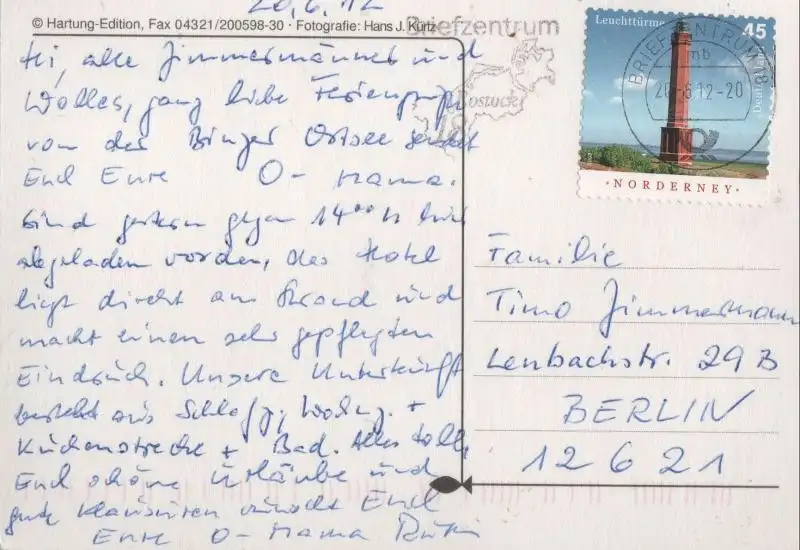 20.6.12
© Hartung-Edition, Fax 04321/200598-30 · Fotografie: Hans J. Kürtz
Briefzentrum
Rostock
18
Leuchttürme
45
Deutschland
BRIEFZENTRUM 18
mb
20-6.12-20
·NORDERNEY·
Hi, alle Zimmermänner und
Wolles, ganz liebe Feriengrüße
von der Binzer Ostsee sendet
Euch Eure O-mama.
Sind gestern gegen 14⁰⁰ h hier
abgeladen worden, das Hotel
liegt direkt am Strand und
macht einen sehr gepflegten
Eindruck. Unsere Unterkunft
besteht aus Schlafz, Wohnz. +
Küchenstrecke + Bad. Alles toll,
Euch schöne Urläube und
gute Klausuren wünscht Euch
Eure O-mama
Familie
Timo Zimmermann
Lenbachstr. 29 B
BERLIN
12621